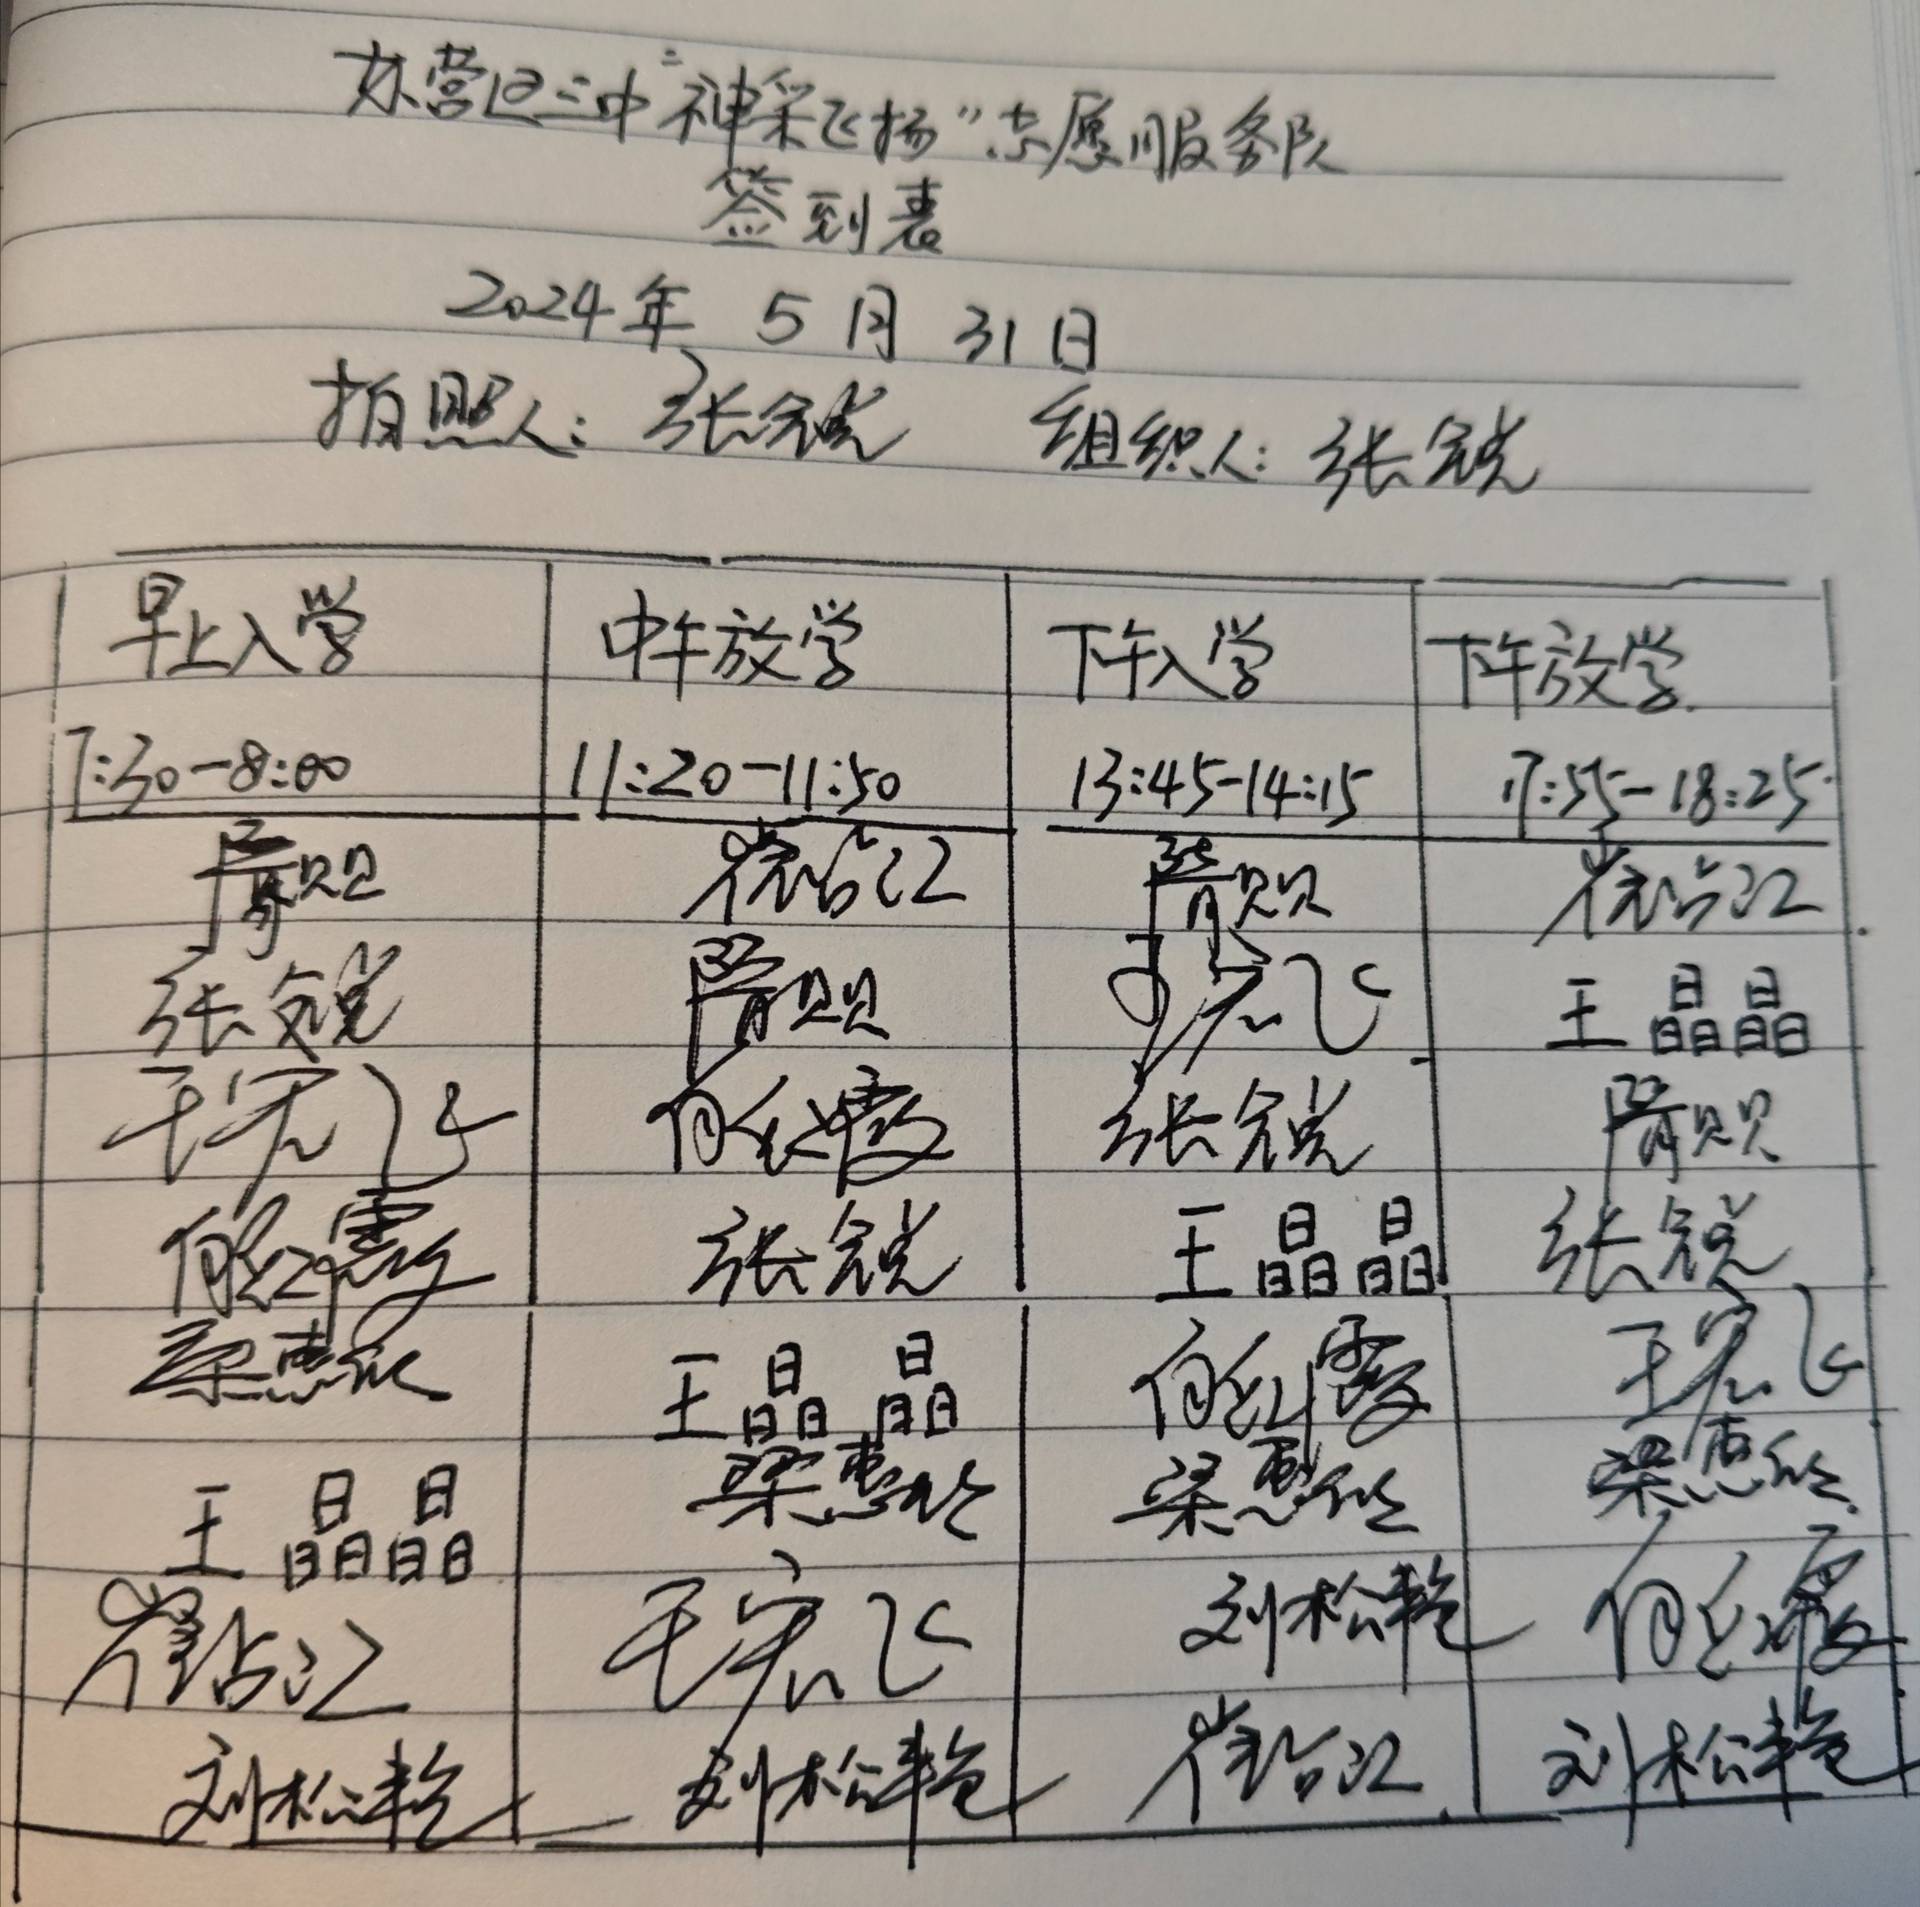 东营区三中“神采飞扬”志愿服务队
签到表
2024年 5月 31日
拍照人：张锐 组织人：张锐
早上入学 中午放学 下午入学 下午放学
7:30-8:00 11:20-11:50 13:45-14:15 17:55-18:25
崔占江 崔占江
张锐 于宏飞 王晶晶
于宏飞 何红霞 张锐
何红霞 张锐 王晶晶 张锐
王晶晶 何红霞 于宏飞
王晶晶
崔占江 于宏飞 刘松艳 何红霞
刘松艳 刘松艳 崔占江 刘松艳